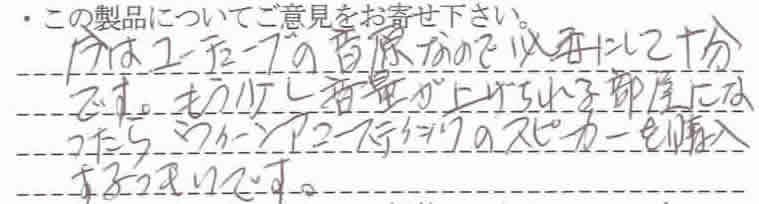 ・この製品についてご意見をお寄せ下さい。
今はユーチューブの音源なので必要にして十分
です。もう少し音量が上げられる部屋にな
ったらウィーンアコースティックのスピーカーを購入
するつもりです。